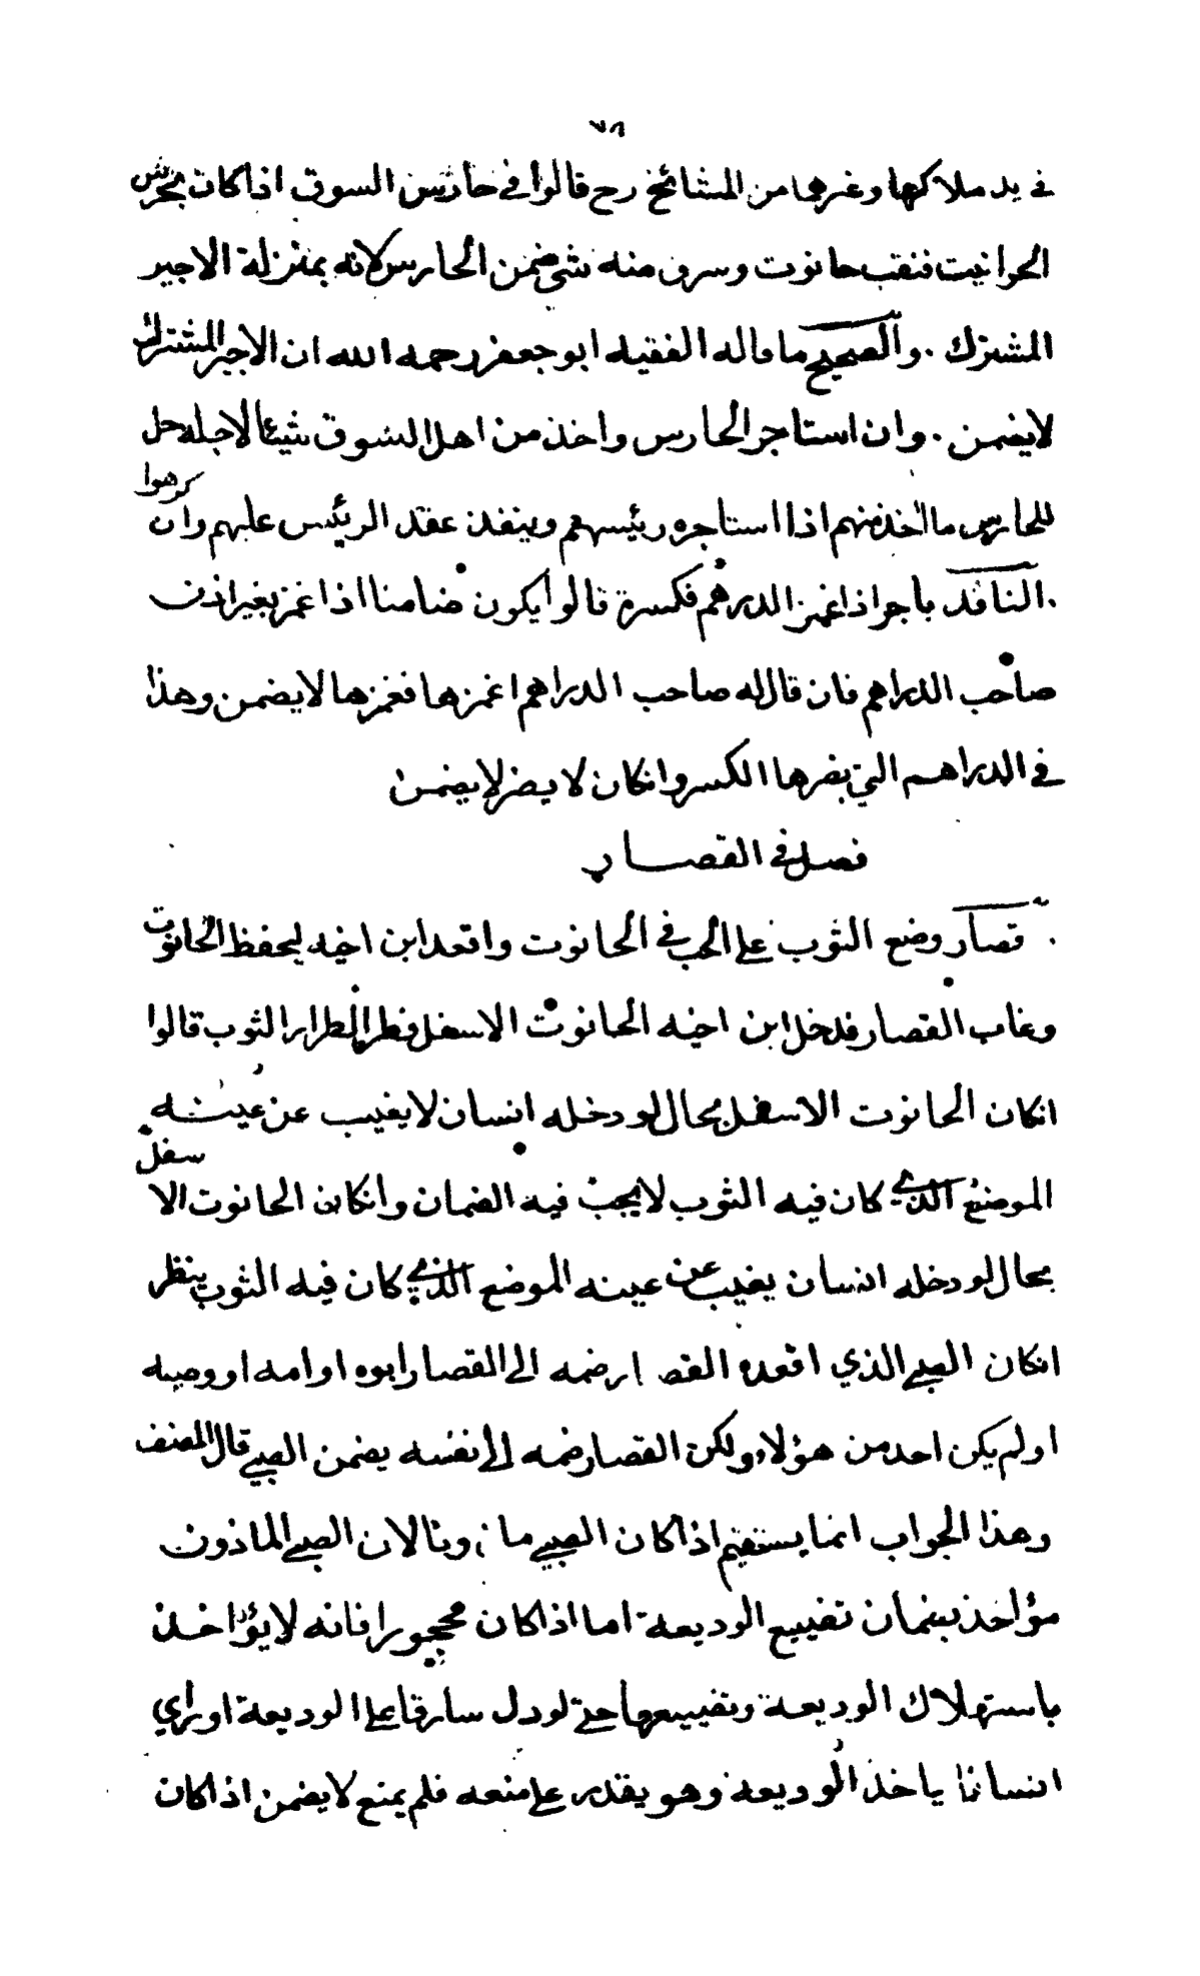 ٧٨
في يد ملاكها وغيرهما من المشائخ رح قالوا في حارس السوق اذا كان يحرس
الحوانيت فنقب حانوت وسرق منه شئ ضمن الحارس لانه بمنزلة الاجير
المشترك . والصحيح ما قاله الفقيه ابو جعفر رحمه الله ان الاجير المشترك
لا يضمن . وان استاجر الحارس واخذ من اهل السوق شيئا لاجله حل
للحارس ما اخذ منهم اذا استاجره رئيسهم وينفذ عقد الرئيس عليهم وان كرهوا
. الناقد باجر اذا غمز الدرهم فكسره قالوا يكون ضامنا اذا غمز بغير اذن
صاحب الدراهم فان قال له صاحب الدراهم اغمزها فغمزها لا يضمن وهذا
في الدراهم التي يضرها الكسر وانكان لا يضر لا يضمن
فصل في القصار
. قصار وضع الثوب على الحب في الحانوت واقعد ابن اخيه ليحفظ الحانوت
وغاب القصار فدخل ابن اخيه الحانوت الاسفل فطر الطرار الثوب قالوا
انكان الحانوت الاسفل بحال لو دخله انسان لا يغيب عن عينه
الموضع الذي كان فيه الثوب لا يجب فيه الضمان وانكان الحانوت الاسفل
بحال لو دخله انسان يغيب عن عينه الموضع الذي كان فيه الثوب ينظر
انكان الصبي الذي اقعده القصار ضمه الى القصار ابوه او امه او وصيه
او لم يكن احد من هؤلاء ولكن القصار ضمه الى نفسه يضمن الصبي قال المصنف
وهذا الجواب انما يستقيم اذا كان الصبي ماذونا لان الصبي الماذون
مؤاخذ بضمان تضييع الوديعة اما اذا كان محجورا فانه لا يؤاخذ
باستهلاك الوديعة وتضييعها حتى لو دل سارقا على الوديعة او راي
انسانا ياخذ الوديعة وهو يقدر على منعه فلم يمنع لا يضمن اذا كان